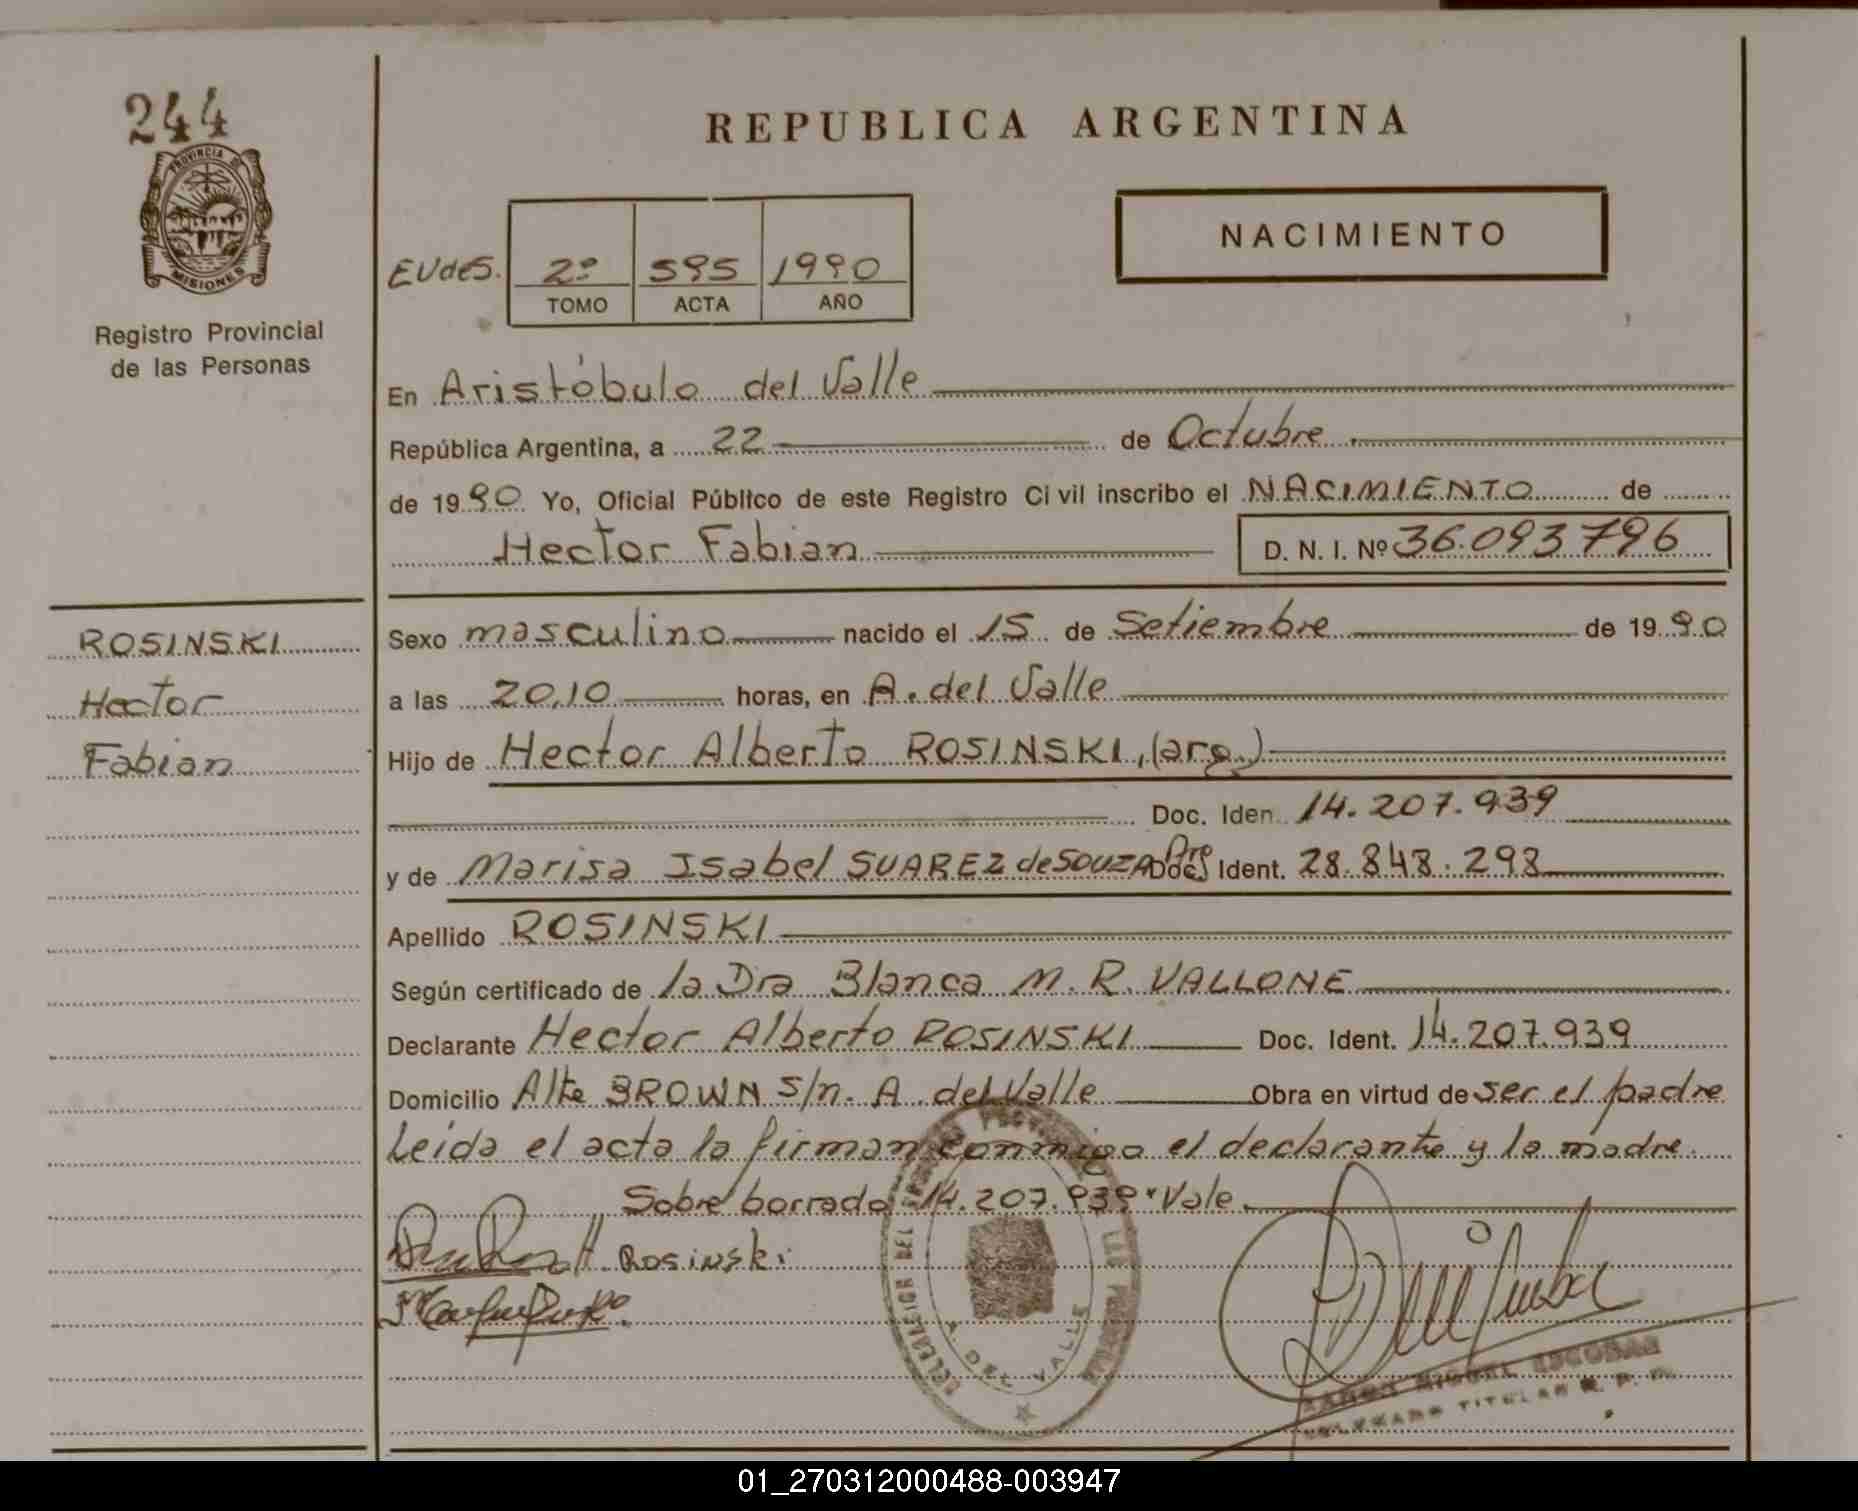 244
PROVINCIA DE
MISIONES
Registro Provincial
de las Personas
ROSINSKI
Hector
Fabian
REPUBLICA ARGENTINA
NACIMIENTO
EUdeS. 2º 595 1990
TOMO ACTA AÑO
En Aristóbulo del Valle
República Argentina, a 22 de Octubre
de 1990 Yo, Oficial Público de este Registro Civil inscribo el NACIMIENTO de
Hector Fabian D. N. I. Nº 36.093796
Sexo masculino nacido el 15 de Setiembre de 1990
a las 20,10 horas, en A. del Valle
Hijo de Hector Alberto ROSINSKI, (arg.)
Doc. Iden. 14.207.939
y de Marisa Isabel SUAREZ de SOUZA Doc. Ident. 28.848.298
Apellido ROSINSKI
Según certificado de la Dra Blanca M. R. VALLONE
Declarante Hector Alberto ROSINSKI Doc. Ident. 14.207.939
Domicilio Alte BROWN s/n. A. del Valle Obra en virtud de ser el padre
Leida el acta la firman conmigo el declarante y la madre.
Sobre borrado 14.207.939 "Vale.
H. Rosinski
A. DEL VALLE
MIGUEL ESCOBAR
TITULAR R. P. P.
01_270312000488-003947